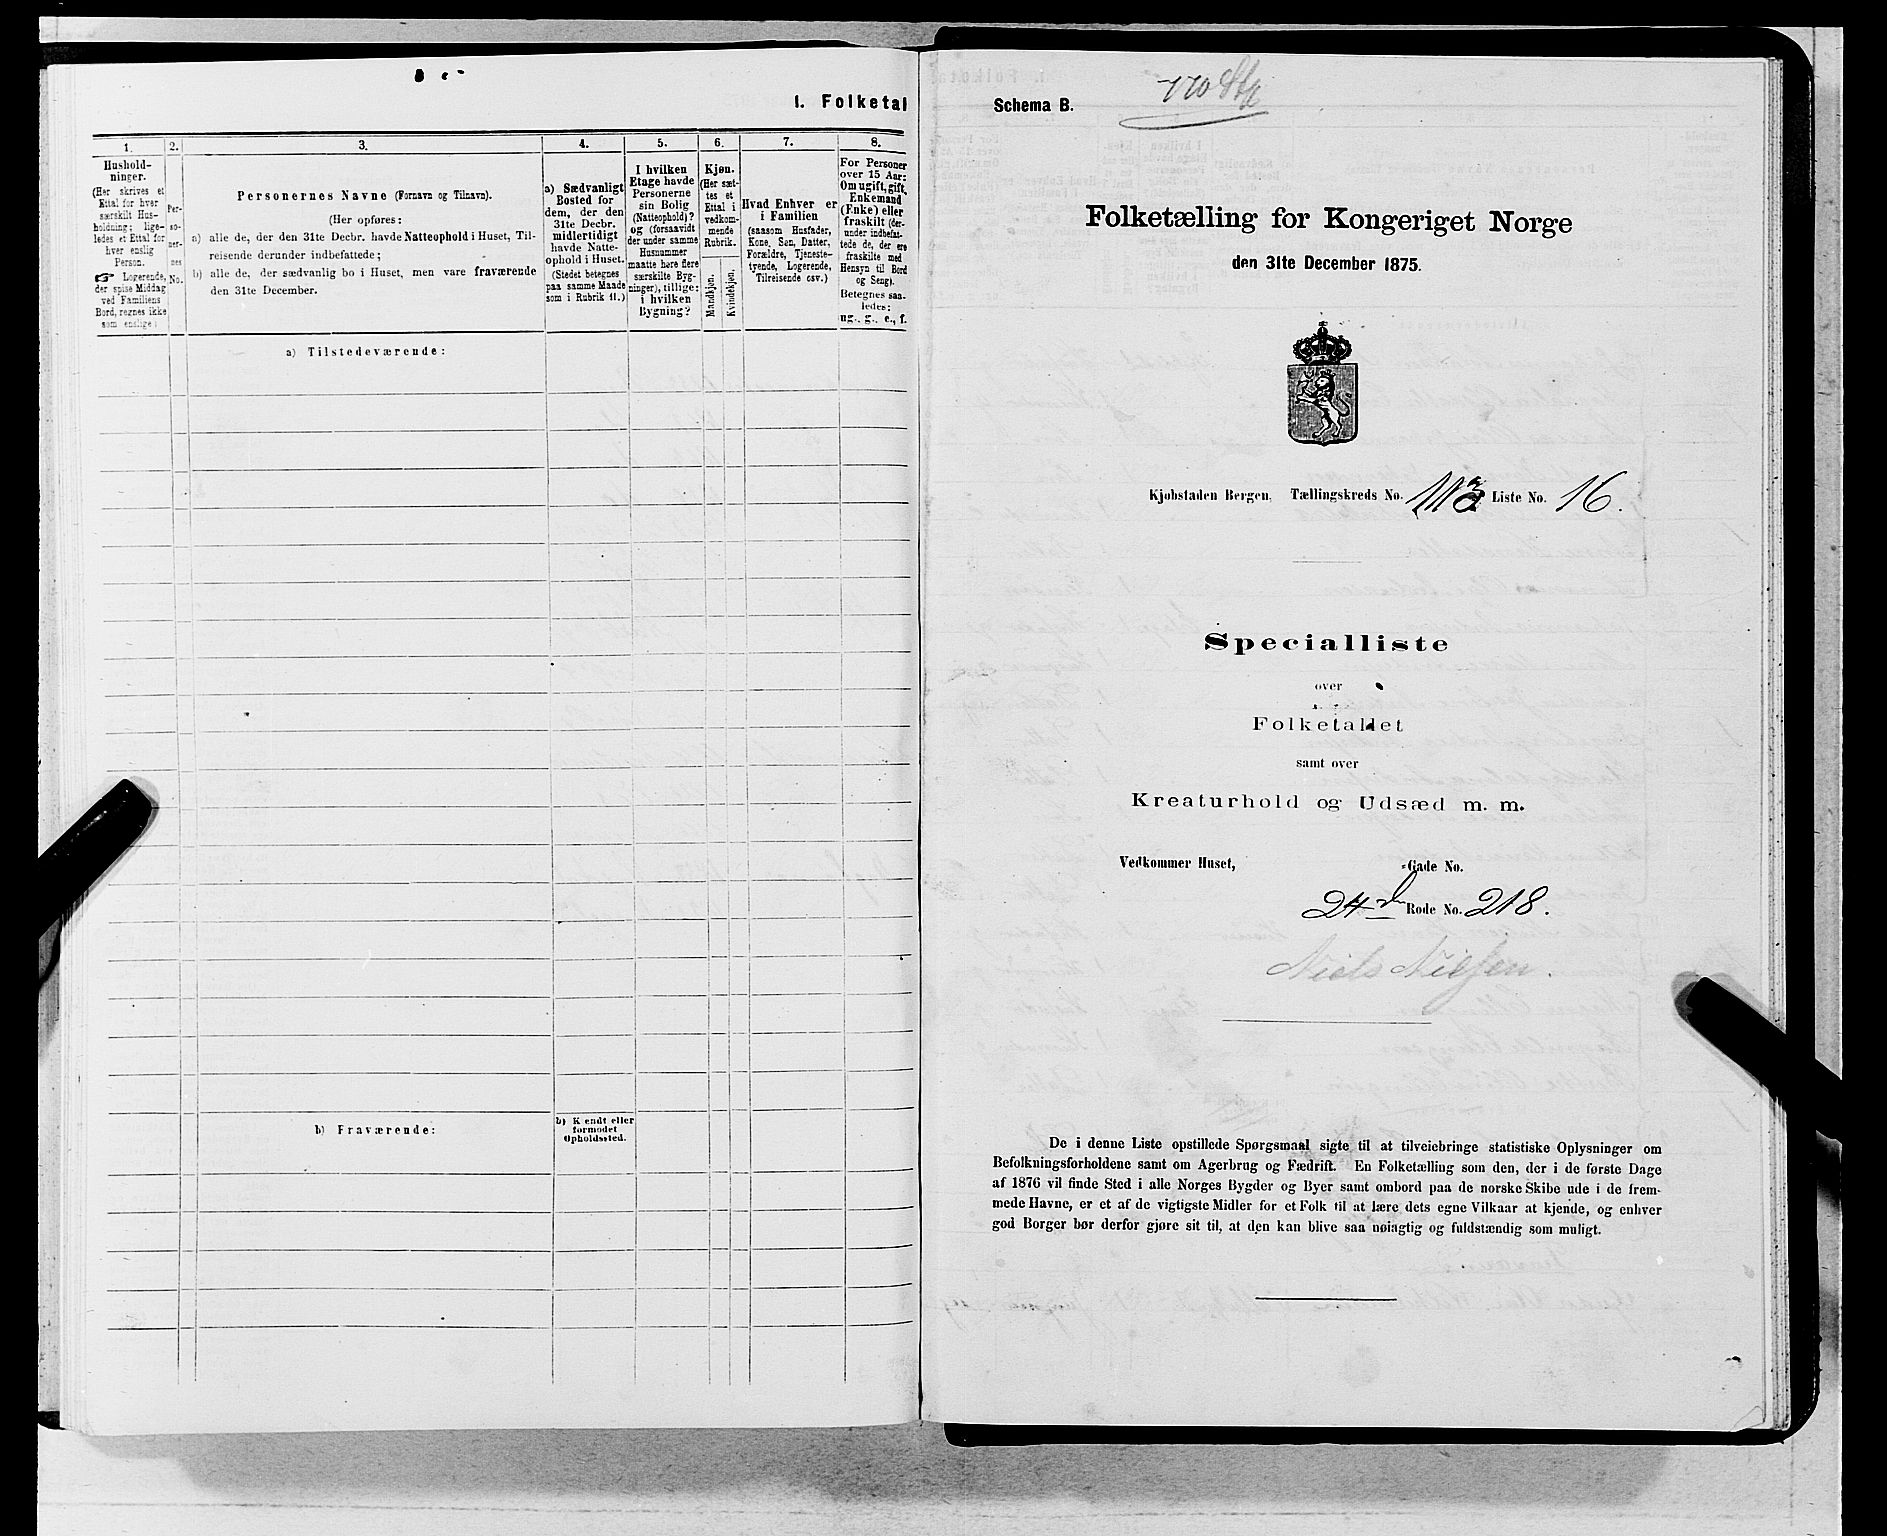 1. Folketal
1.
Hushold-
ninger.
(Her skrives et
Ettal for hver
særskilt Hus-
holdning; lige-
ledes et Ettal for
hver enslig
Person.
☞ Logerende,
der spise Middag
ved Familiens
Bord, regnes ikke
som enslige)
2.
Per-
so-
ner-
nes
No.
3.
Personernes Navne (Fornavn og Tilnavn).
(Her opføres:
a) alle de, der den 31te Decbr. havde Natteophold i Huset, Til-
reisende derunder indbefattede;
b) alle de, der sædvanlig bo i Huset, men vare fraværende
den 31te December.
4.
a) Sædvanligt
Bosted for
dem, der den
31te Decbr.
midlertidigt
havde Natte-
ophold i Huset.
(Stedet betegnes
paa samme Maade
som i Rubrik 11.)
5.
I hvilken
Etage havde
Personerne
sin Bolig
(Natteophold)?
og (forsaavidt
der under samme
Husnummer
maatte høre flere
særskilte Byg-
ninger), tillige:
i hvilken
Bygning?
6.
Kjøn.
(Her sæt-
tes et
Ettal i
vedkom-
mende
Rubrik.
Mandkjøn.
Kvindekjøn.
7.
Hvad Enhver er
i Familien
(saasom Husfader,
Kone, Søn, Datter,
Forældre, Tjeneste-
tyende, Logerende,
Tilreisende osv.)
8.
For Personer
over 15 Aar:
Om ugift, gift,
Enkemand
(Enke) eller
fraskilt (der-
under indbefat-
tede de, der ere
fraskilte med
Hensyn til Bord
og Seng).
Betegnes saa-
ledes:
ug., g., e., f.
a) Tilstedeværende:
b) Fraværende:
b) Kjendt eller
formodet
Opholdssted.
Schema B.
Folketælling for Kongeriget Norge
den 31te December 1875.
Kjøbstaden Bergen, Tællingskreds No. Liste No. 16.
Specialliste
over
Folketallet
samt over
Kreaturhold og Udsæd m. m.
Vedkommer Huset, -Gade No.
24de Rode No. 218.
Niels Nilsen.
De i denne Liste opstillede Spørgsmaal sigte til at tilveiebringe statistiske Oplysninger om
Befolkningsforholdene samt om Agerbrug og Fædrift. En Folketælling som den, der i de første Dage
af 1876 vil finde Sted i alle Norges Bygder og Byer samt ombord paa de norske Skibe ude i de frem-
mede Havne, er et af de vigtigste Midler for et Folk til at lære dets egne Vilkaar at kjende, og enhver
god Borger bør derfor gjøre sit til, at den kan blive saa nøiagtig og fuldstændig som muligt.